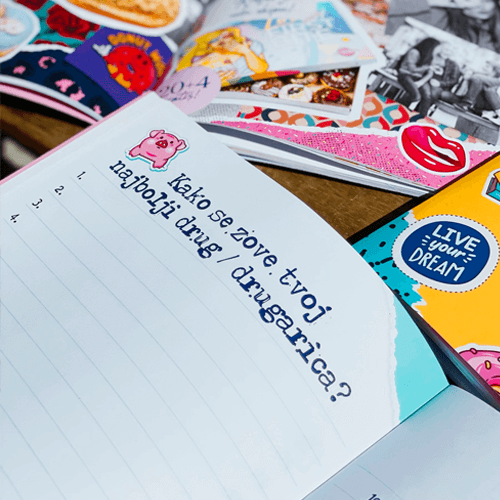 Kako se zove tvoj
najbolji drug / drugarica?
1.
2.
3.
4.
LIVE
your
DREAM
20+4